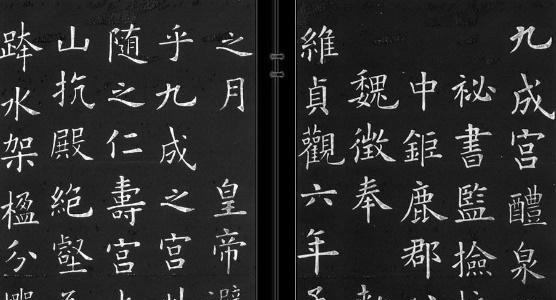 九成宮醴泉
祕書監撿
中鉅鹿郡
魏徵奉
維貞觀六年
之月 皇帝
乎九成之宮
随之仁壽宮
山抗殿絶壑
跨水架楹分